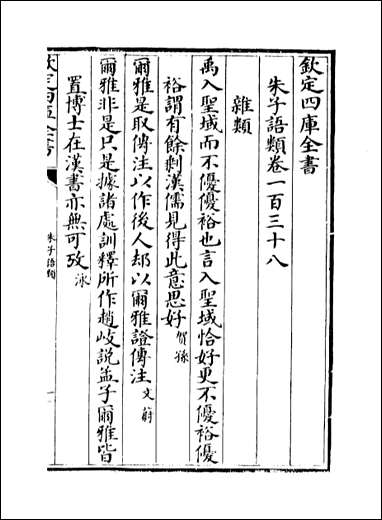 欽定四庫全書
朱子語類卷一百三十八
雜類
禹入聖域而不優優裕也言入聖域恰好更不優裕優
裕謂有餘剩漢儒見得此意思好賀孫
爾雅是取傳注以作後人却以爾雅證傳注文蔚
爾雅非是只是據諸處訓釋所作趙岐說孟子爾雅皆
置博士在漢書亦無可攷泳
欽定四庫全書
朱子語類